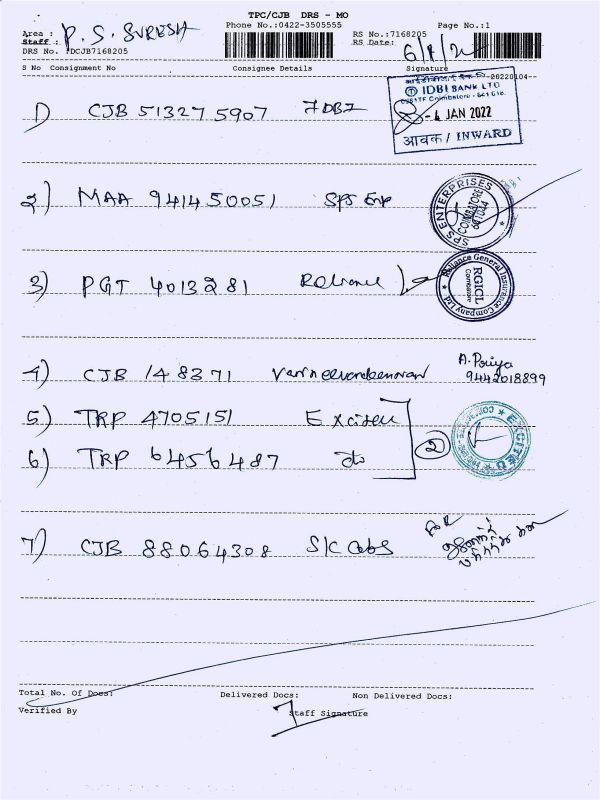 TPC/CJB DRS - MO
Phone No.:0422-3505555 Page No.:1
Area : P. S. SURESH RS No.:7168205
Staff : RS Date: 6/1/22
DRS No. :DCJB7168205
S No Consignment No Consignee Details Signature -20220104-
IDBI BANK LTD
Coimbatore - 641 018.
- 4 JAN 2022
आवक / INWARD
1) CJB 513275907 IDBI
2) MAA 941450051 SPS Enp
SPS ENTERPRISES
COIMBATORE
641044
3) PGT 4013281 Reliance
Reliance General Insurance Company Ltd
RGICL
Coimbatore
4) CJB 148371 A. Priya
9442018899
5) TRP 4705151
6) TRP 6456487 do 2
EXCITED
7) CJB 88064308 S/C Cabs
For
Total No. Of Docs: Delivered Docs: Non Delivered Docs:
Verified By Staff Signature